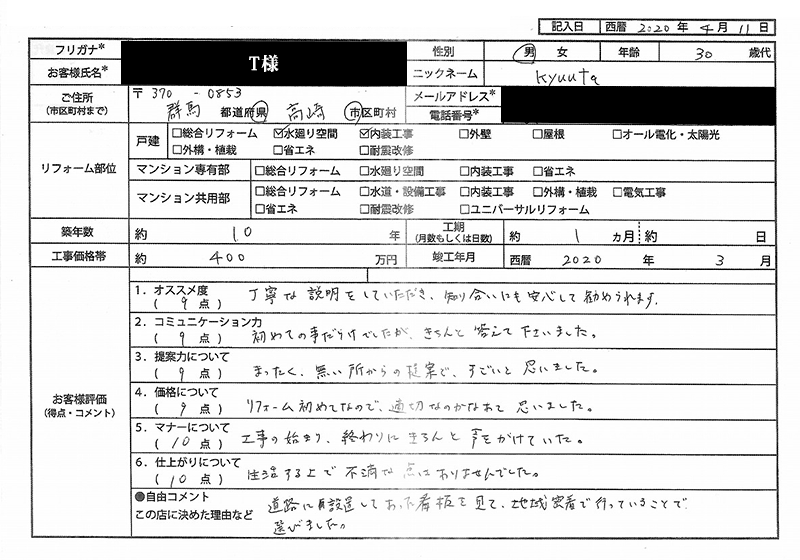 記入日 西暦 2020 年 4 月 11 日
フリガナ* T様 性別 男 女 年齢 30 歳代
お客様氏名* ニックネーム kyuuta
ご住所 〒370-0853 メールアドレス*
(市区町村まで) 群馬 都道府県 高崎 市区町村 電話番号*
リフォーム部位 戸建 □総合リフォーム ☑水廻り空間 ☑内装工事 □外壁 □屋根 □オール電化・太陽光
□外構・植栽 □省エネ □耐震改修
マンション専有部 □総合リフォーム □水廻り空間 □内装工事 □省エネ
マンション共用部 □総合リフォーム □水道・設備工事 □内装工事 □外構・植栽 □電気工事
□省エネ □耐震改修 □ユニバーサルリフォーム
築年数 約 10 年 工期 (月数もしくは日数) 約 1 ヵ月 約 日
工事価格帯 約 400 万円 竣工年月 西暦 2020 年 3 月
お客様評価
(得点・コメント)
1.オススメ度
(9点) 丁寧な説明をしていただき、知り合いにも安心して勧められます。
2.コミュニケーション力
(9点) 初めての事だらけでしたが、きちんと答えて下いました。
3.提案力について
(9点) まったく、無い所からの提案で、すごいと思いました。
4.価格について
(9点) リフォーム初めてなので、適切なのかなあと思いました。
5.マナーについて
(10点) 工事の始まり、終わりにきちんと声をかけていた。
6.仕上がりについて
(10点) 生活する上で不満な点はありませんでした。
●自由コメント
この店に決めた理由など 道路に設置してあった看板を見て、地域密着で行っていることで
選びました。